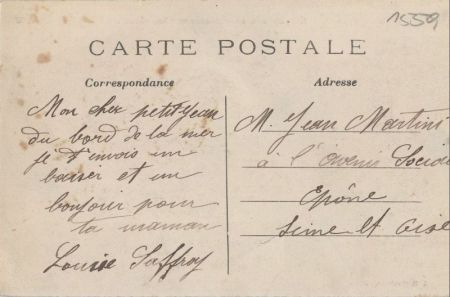 1559
CARTE POSTALE
Correspondance
Mon cher petit Jean
du bord de la mer
je t'envois un
baiser et un
bonjour pour
ta maman
Louise Saffroy
Adresse
M. Jean Martini
à l'avenir Social
Epône
Seine et Oise